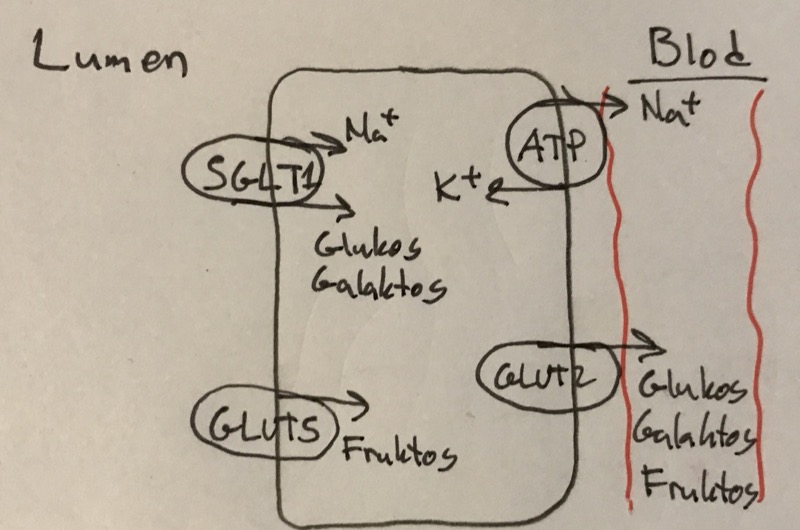 Lumen
Blod
Na+
SGLT1
Na+
ATP
K+
Glukos
Galaktos
GLUT2
Glukos
Galaktos
Fruktos
GLUT5
Fruktos